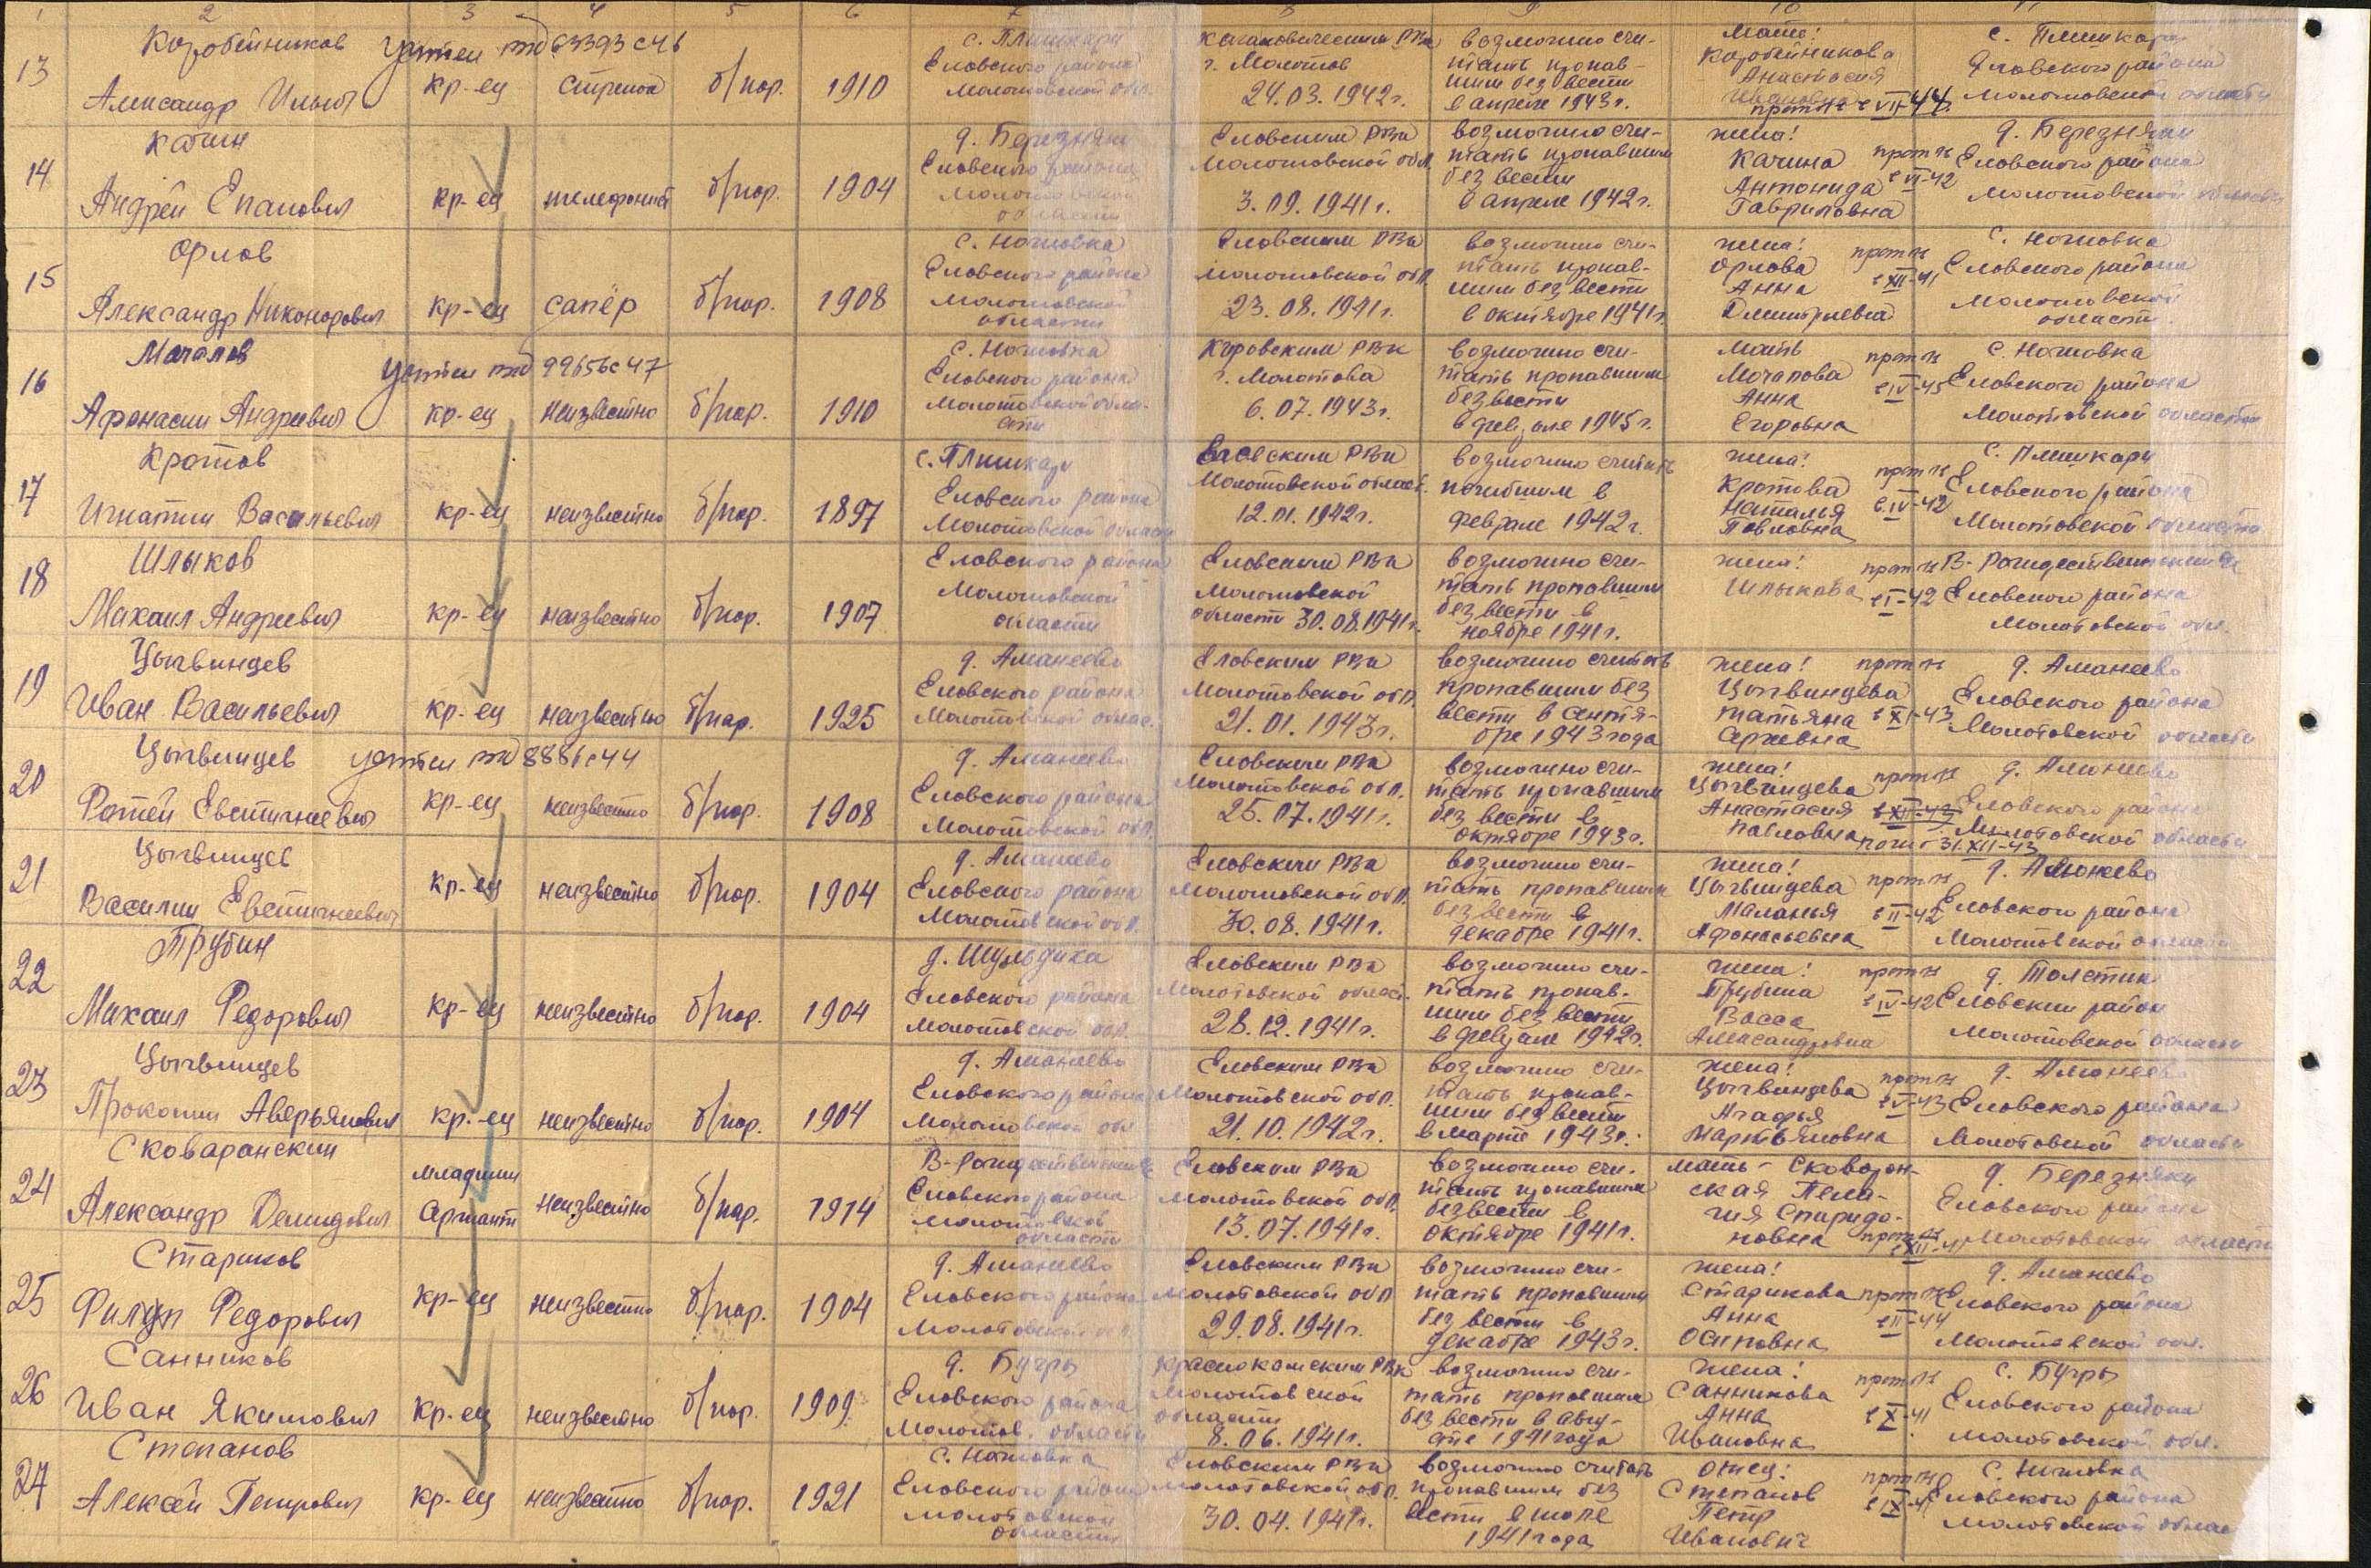 1 2 3 4 5 6 7 8 9 10 11
13 Коробейников Александр Ильич
учтен тд 63393 с 46
кр-ец стрелок б/пар. 1910
с. Плишкари Еловского района Молотовской обл.
Кагановическим РВк г. Молотов 24.03.1942г.
возможно считать пропавшим без вести в апреле 1943г.
мать: Коробейникова Анастасия Ивановна
VII-44
с. Плишкари Еловского района Молотовской области
14 Качин Андрей
кр-ец телефонист б/пар. 1904
д. Березняки Еловского района Молотовской области
Еловским РВк Молотовской обл. 3.09.1941г.
возможно считать пропавшим без вести в апреле 1942г.
жена: Качина Антонида Гавриловна
с VI-42
д. Березняки Еловского района Молотовской области
15 Орлов Александр Никонорович
кр-ец сапёр б/пар. 1908
с. Ножовка Еловского района Молотовской области
Еловским РВк Молотовской обл. 23.08.1941г.
возможно считать пропавшим без вести в октябре 1941г.
жена: Орлова Анна Дмитриевна
с XII-41
с. Ножовка Еловского района Молотовской области
16 Мочалов Афонасий Андреевич
учтен тд 99656 с 47
кр-ец неизвестно б/пар. 1910
с. Ножовка Еловского района Молотовской области
Кировским РВк г. Молотова 6.07.1943г.
возможно считать пропавшим без вести в феврале 1945г.
мать Мочалова Анна Егоровна
с IV-45
с. Ножовка Еловского района Молотовской области
17 Кротов Игнатий Васильевич
кр-ец неизвестно б/пар. 1897
с. Плишкари Еловского района Молотовской области
Еловским РВк Молотовской област. 12.01.1942г.
возможно считать погибшим в феврале 1942г.
жена: Кротова Наталья Павловна
с IV-42
с. Плишкари Еловского района Молотовской области
18 Шлыков Михаил Андреевич
кр-ец неизвестно б/пар. 1907
Еловского района Молотовской области
Еловским РВк Молотовской области 30.08.1941г.
возможно считать пропавшим без вести в ноябре 1941г.
жена: Шлыкова
с I-42
В-Рождественский Еловского района Молотовской обл.
19 Цыгвинцев Иван Васильевич
кр-ец неизвестно б/пар. 1925
д. Аманеево Еловского района Молотовской облас.
Еловским РВк Молотовской обл. 21.01.1943г.
возможно считать пропавшим без вести в сентябре 1943 года
жена: Цыгвинцева Татьяна Сергеевна
с XI-43
д. Аманеево Еловского района Молотовской области
20 Цыгвинцев Фотей Евстигнеевич
учтен тд 8886 с 44
кр-ец неизвестно б/пар. 1908
д. Аманеево Еловского района Молотовской обл.
Еловским РВк Молотовской обл. 25.07.1941г.
возможно считать пропавшим без вести в октябре 1943г.
жена: Цыгвинцева Анастасия Павловна
с XII-43
погиб 31.XII-43
д. Аманеево Еловского района Молотовской области
21 Цыгвинцев Василий Евстигнеевич
кр-ец неизвестно б/пар. 1904
д. Аманеево Еловского района Молотовской обл.
Еловским РВк Молотовской обл. 30.08.1941г.
возможно считать пропавшим без вести в декабре 1941г.
жена: Цыгвинцева Маланья Афонасьевна
с II-42
д. Аманеево Еловского района Молотовской области
22 Трубин Михаил Федорович
кр-ец неизвестно б/пар. 1904
д. Шульдиха Еловского района Молотовской обл.
Еловским РВк Молотовской област. 28.12.1941г.
возможно считать пропавшим без вести в феврале 1942г.
жена: Трубина Васса Александровна
с IV-42
д. Толстик Еловский район Молотовской области
23 Цыгвинцев Прокопий Аверьянович
кр-ец неизвестно б/пар. 1904
д. Аманеево Еловского района Молотовской обл
Еловским РВк Молотовской обл. 21.10.1942г.
возможно считать пропавшим без вести в марте 1943г.
жена: Цыгвинцева Агафья Мартьяновна
с V-43
д. Аманеево Еловского района Молотовской области
24 Сковаранский Александр Демидович
младший сержант неизвестно б/пар. 1914
В-Рождественский Еловского района Молотовской области
Еловским РВк Молотовской обл. 13.07.1941г.
возможно считать пропавшим без вести в октябре 1941г.
мать - Сковоронская Пелагия Спиридоновна
с XII-41
д. Березняки Еловского района Молотовской области
25 Стариков Филип Федорович
кр-ец неизвестно б/пар. 1904
д. Аманеево Еловского района Молотовской обл.
Еловским РВк Молотовской обл 29.08.1941г.
возможно считать пропавшим без вести в декабре 1943г.
жена: Старикова Анна Осиповна
с II-44
д. Аманеево Еловского района Молотовской обл.
26 Санников Иван Якимович
кр-ец неизвестно б/пар. 1909
д. Бугры Еловского района Молотов. области
Краснокамским РВк Молотовской области 8.06.1941г.
возможно считать пропавшим без вести в августе 1941 года
жена: Санникова Анна Ивановна
с X-41
с. Бугры Еловского района Молотовской обл.
27 Степанов Алексей Петрович
кр-ец неизвестно б/пар. 1921
с. Ножовка Еловского района Молотовской области
Еловским РВк Молотовской обл. 30.04.1941г.
возможно считать пропавшим без вести в июле 1941 года
отец: Степанов Петр Иванович
с IX-41
с. Ножовка Еловского района Молотовской облас